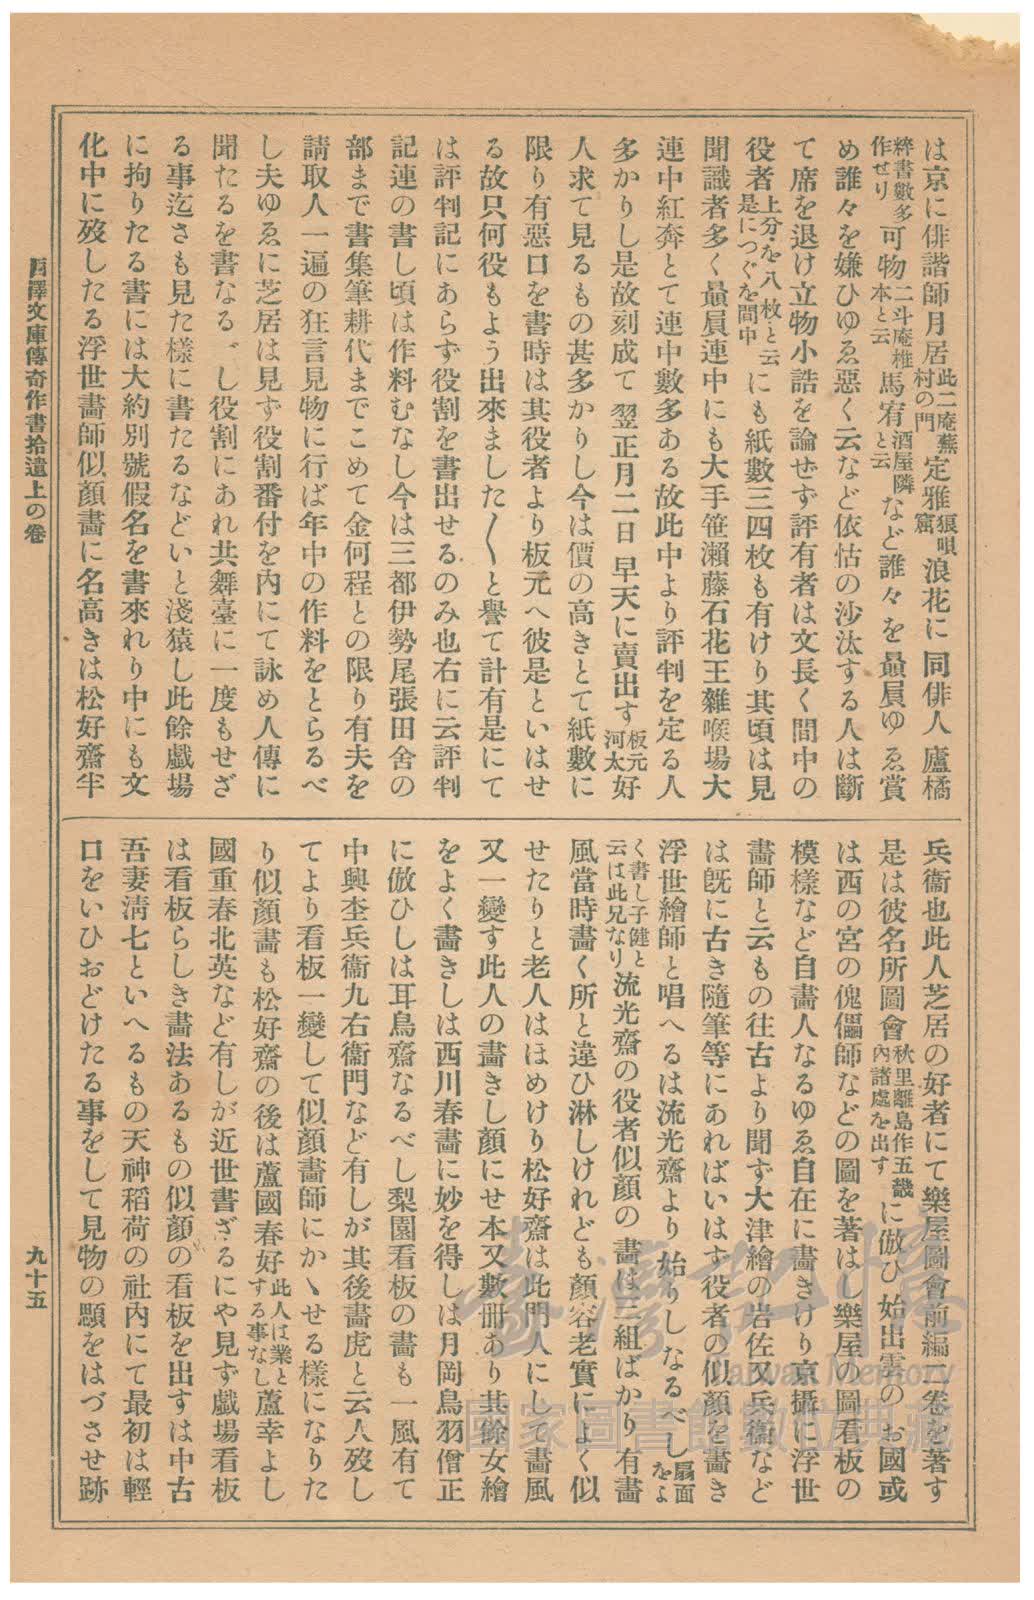 は京に俳諧師月居此二庵蕪村の門定雅狽唄窟浪花に同俳人廬橘
粹書數多作せり可物二斗庵椎本と云馬宥酒屋隣と云など誰々を贔屓ゆゑ賞
め誰々を嫌ひゆゑ惡く云など依怙の沙汰する人は斷
て席を退け立物小詰を論せず評有者は文長く間中の
役者上分を八枚と云是につぐを間中にも紙數三四枚も有けり其頃は見
聞識者多く贔屓連中にも大手笹瀨藤石花王雜喉場大
連中紅奔とて連中數多ある故此中より評判を定る人
多かりし是故刻成て翌正月二日早天に賣出す板元河太好
人求て見るもの甚多かりし今は價の高きとて紙數に
限り有惡口を書時は其役者より板元へ彼是といはせ
る故只何役もよう出來ました〳〵と譽て計有是にて
は評判記にあらず役割を書出せるのみ也右に云評判
記連の書し頃は作料むなし今は三都伊勢尾張田舍の
部まで書集筆耕代までこめて金何程との限り有夫を
請取人一遍の狂言見物に行ば年中の作料をとらるべ
し夫ゆゑに芝居は見ず役割番付を內にて詠め人傳に
聞たるを書なるべし役割にあれ共舞臺に一度もせざ
る事迄さも見た樣に書たるなどいと淺猿し此餘戲場
に拘りたる書には大約別號假名を書來れり中にも文
化中に歿したる浮世畵師似顏畵に名高きは松好齋半
兵衞也此人芝居の好者にて樂屋圖會前編二卷を著す
是は彼名所圖會秋里離島作五畿內諸處を出すに倣ひ始出雲のお國或
は西の宮の傀儡師などの圖を著はし樂屋の圖看板の
模樣など自畵人なるゆゑ自在に畵きけり京攝に浮世
畵師と云もの往古より聞ず大津繪の岩佐又兵衞など
は旣に古き隨筆等にあればいはす役者の似顏を畵き
浮世繪師と唱へるは流光齋より始りしなるべし扇面をよ
く書し子健と云は此兄なり流光齋の役者似顏の畵は三組ばかり有畵
風當時畵く所と違ひ淋しけれども顏容老實によく似
せたりと老人はほめけり松好齋は此門人にして畵風
又一變す此人の畵きし顏にせ本又數冊あり其餘女繪
をよく畵きしは西川春畵に妙を得しは月岡鳥羽僧正
に倣ひしは耳鳥齋なるべし梨園看板の畵も一風有て
中興杢兵衞九右衞門など有しが其後畵虎と云人歿し
てより看板一變して似顏畵師にかゝせる樣になりた
り似顏畵も松好齋の後は蘆國春好此人は業とする事なし蘆幸よし
國重春北英など有しが近世書ざるにや見ず戲場看板
は看板らしき畵法あるもの似顏の看板を出すは中古
吾妻淸七といへるもの天神稻荷の社內にて最初は輕
口をいひおどけたる事をして見物の顋をはづさせ跡
西澤文庫傳奇作書拾遺上の卷
九十五
臺灣記憶
Taiwan Memory
國家圖書館數位典藏